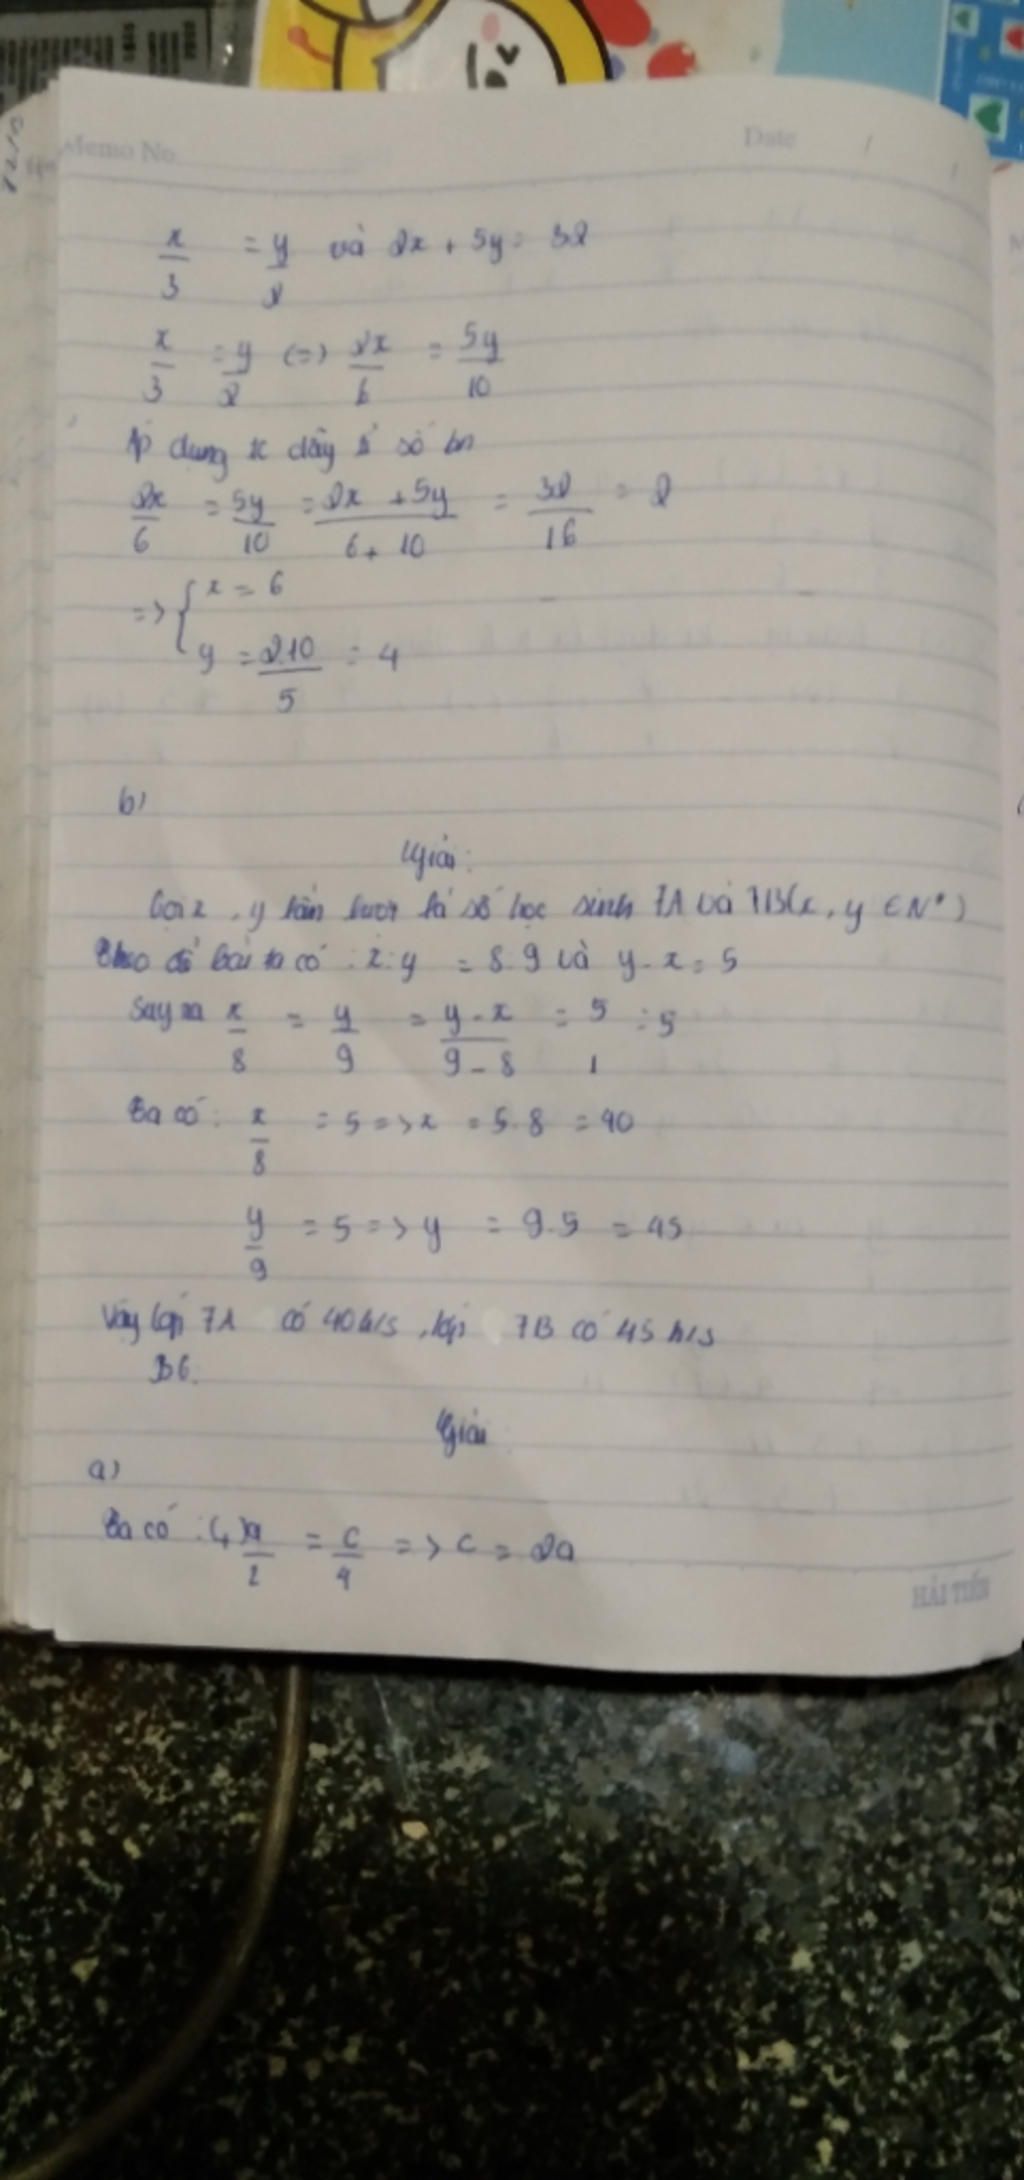 Memo No. Date / /
x/3 = y/2 và 2x + 5y = 32
x/3 = y/2 (=) 2x/6 = 5y/10
Áp dụng tc dãy tỉ số bn
2x/6 = 5y/10 = 2x + 5y/6 + 10 = 32/16 = 2
=> { x = 6
y = 2.10/5 = 4
b)
Giải:
Gọi x, y lần lượt là số học sinh 7A và 7B (x, y ∈ N*)
Theo đề bài ta có : x : y = 8:9 và y - x = 5
Suy ra x/8 = y/9 = y - x/9 - 8 = 5/1 = 5
Ta có : x/8 = 5 => x = 5.8 = 40
y/9 = 5 => y = 9.5 = 45
Vậy lớp 7A có 40 h/s, lớp 7B có 45 h/s
B6.
Giải
a)
Ta có : a/2 = c/4 => c = 2a
HẢI TIẾN